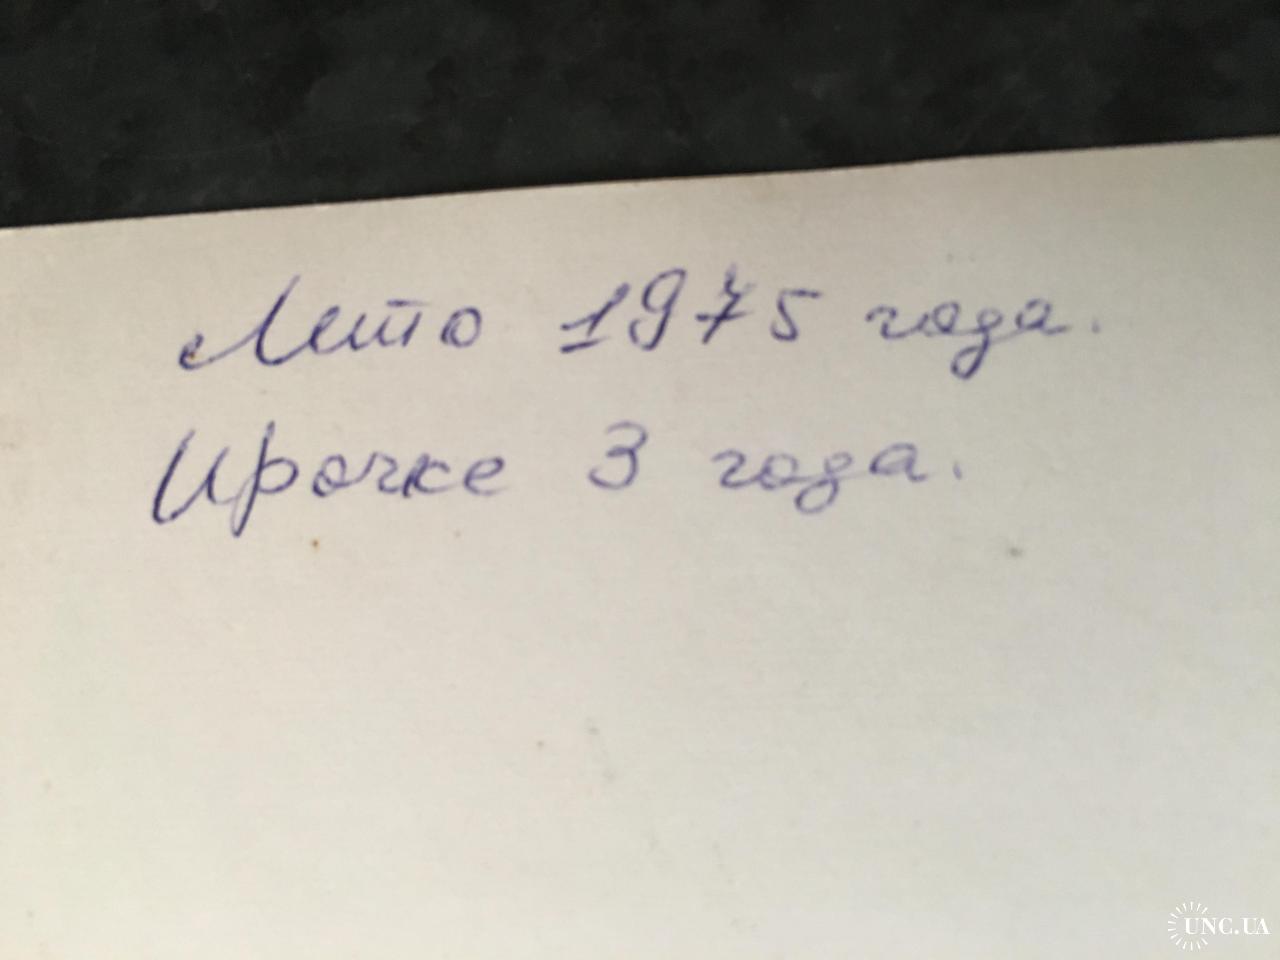 Лето 1975 года.
Ирочке 3 года.
UNC.UA